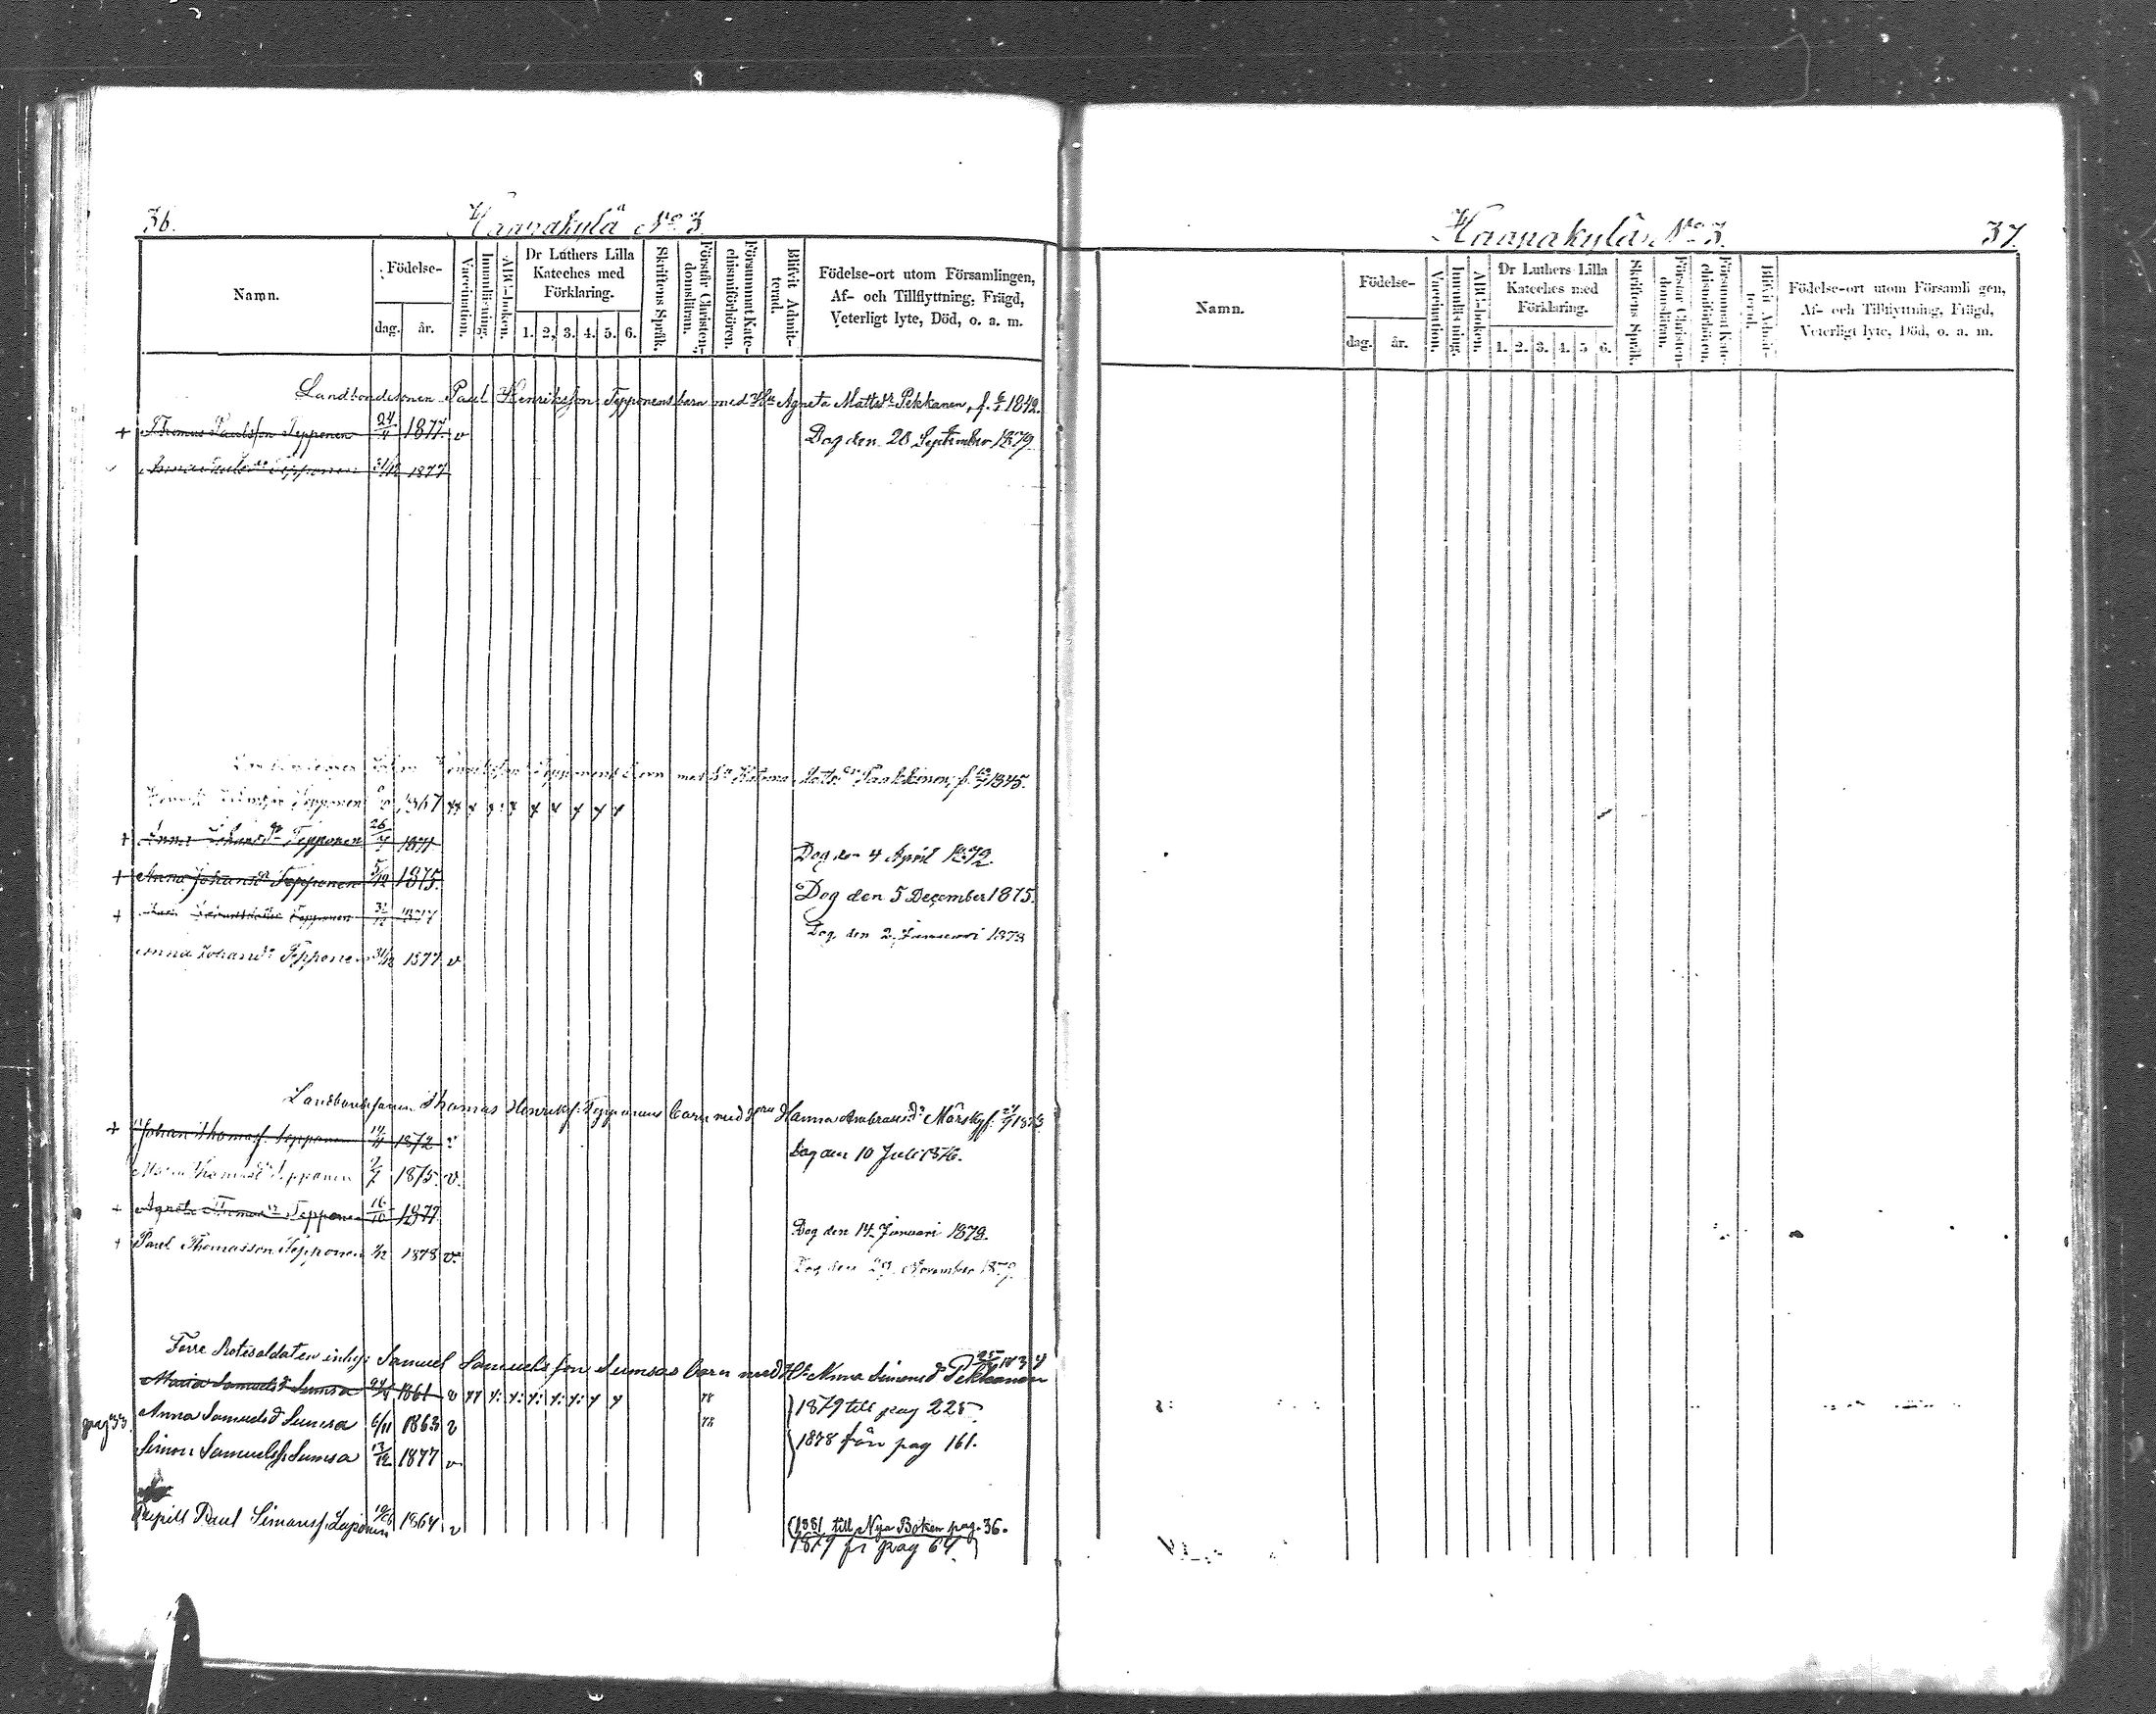 36.
Haapakylä No 3.
Namn.
Födelse-
dag.
år.
Vaccination.
Innanläsning.
ABC-boken.
Dr Luthers Lilla
Kateches med
Förklaring.
1. 2. 3. 4. 5. 6.
Skriftens Språk.
Förstår Christen-
domsläran.
Försummat Kate-
chismiförhören.
Blifvit Admit-
terad.
Födelse-ort utom Församlingen,
Af- och Tillflyttning, Frägd,
Veterligt lyte, Död, o. a. m.
Landbondesonen Paul Henriksson Tepponens barn med H:u Agneta Mattsdr Pekkanen, f. 1842.
+ Thomas Paulsson Tepponen 24/4 1877 v Dog den 28 September 1879.
Tepponen 31/12 1877
Tepponens barn med Katarina Mattsdr Paakkinen, f. 1845.
Tepponen 1867
+ Anna Johansdr Tepponen 26 1871 Dog den 4 April 1872.
+ Anna Johansdr Tepponen 5/12 1875. Dog den 5 December 1875.
+ Tepponen 31/12 1877 Dog den 2 Januari 1878
Anna Johansdr Tepponen 31/12 1877 v
Landbondesonen Thomas Henriksf. Tepponens barn med Hanna Abramsdr f. 27
+ Johan Thomasf. Tepponen 1872 v Dog den 10 Juli 1876.
Maria Thomasdr Tepponen 1875. v.
+ Agneta Thomasdr Tepponen 16/10 1877 Dog den 14 Januari 1878.
+ Paul Thomasson Tepponen 1/12 1878 v. Dog den 29 November 1879.
Förre Rotesoldaten inhys: Samuel Samuelsson Sumsas barn med H:u Anna Simonsd Pekkanen 25 1834
Maria Samuelsd Sumsa 1861 v 78 1879 till pag 225
pag 33. Anna Samuelsd Sumsa 6/11 1863 v 78
Simon Samuelsf. Sumsa 13/12 1877 v 1878 från pag 161.
Pupill Paul Simonsf. 1864 v 1881 till Nya Boken pag. 36.
1879 fr pag 64
Haapakylä No 3.
37.
Namn.
Födelse-
dag.
år.
Vaccination.
Innanläsning.
ABC-boken.
Dr Luthers Lilla
Kateches med
Förklaring.
1. 2. 3. 4. 5 6.
Skriftens Språk.
Förstår Christen-
domsläran.
Försummat Kate-
chismiförhören.
Blifvit Admit-
terad.
Födelse-ort utom Församli gen,
Af- och Tillflyttning, Frägd,
Veterligt lyte, Död, o. a. m.